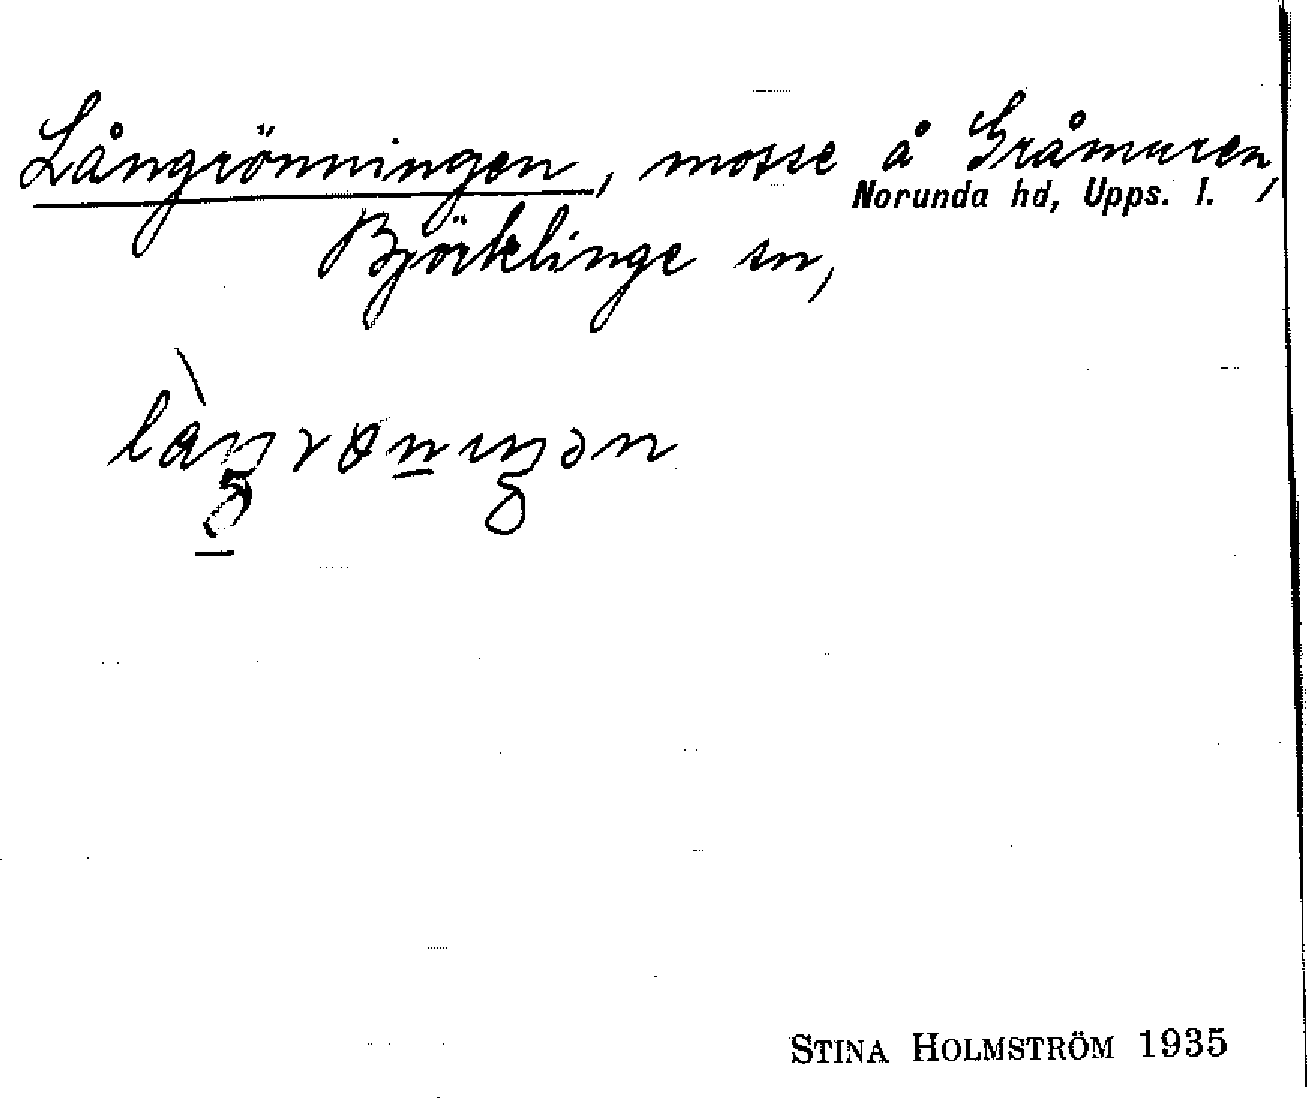 Långrönningen, mosse å Gråmuren,
Norunda hd, Upps. l.
Björklinge sn,
STINA HOLMSTRÖM 1935